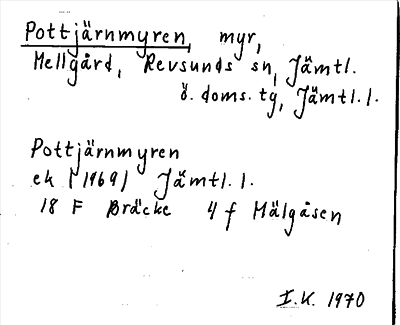 Pottjärnmyren, myr,
Mellgård, Revsunds sn, Jämtl.
ö. doms. tg, Jämtl. l.
Pottjärnmyren
ek (1969) Jämtl. l.
18 F Bräcke 4 f Mälgåsen
I.K. 1970